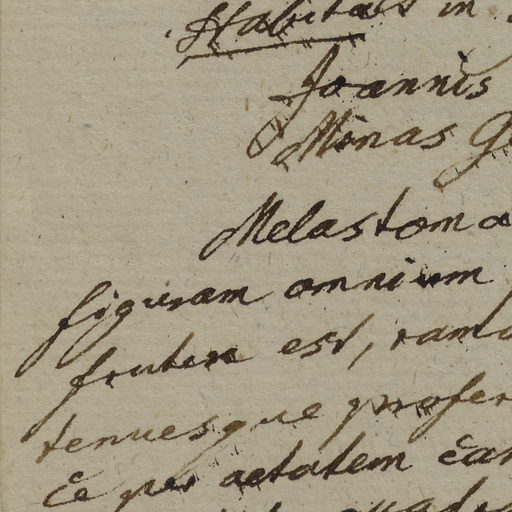 Habitat in
Joannis
Minas G
Melastoma
figuram omnium
frutex est, ramo
tenuesque profer
Ce per aetatem Ca